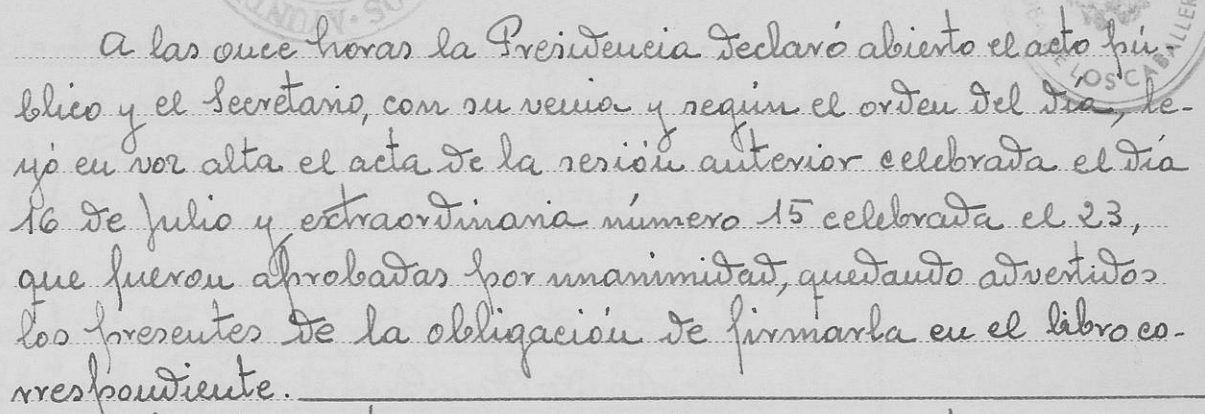 A las once horas la Presidencia declaró abierto el acto pú-
blico y el Secretario, con su venia y según el orden del día, le-
yó en voz alta el acta de la sesión anterior celebrada el día
16 de Julio y extraordinaria número 15 celebrada el 23,
que fueron aprobadas por unanimidad, quedando advertidos
los presentes de la obligación de firmarla en el libro co-
rrespondiente.
LOS CABALLER